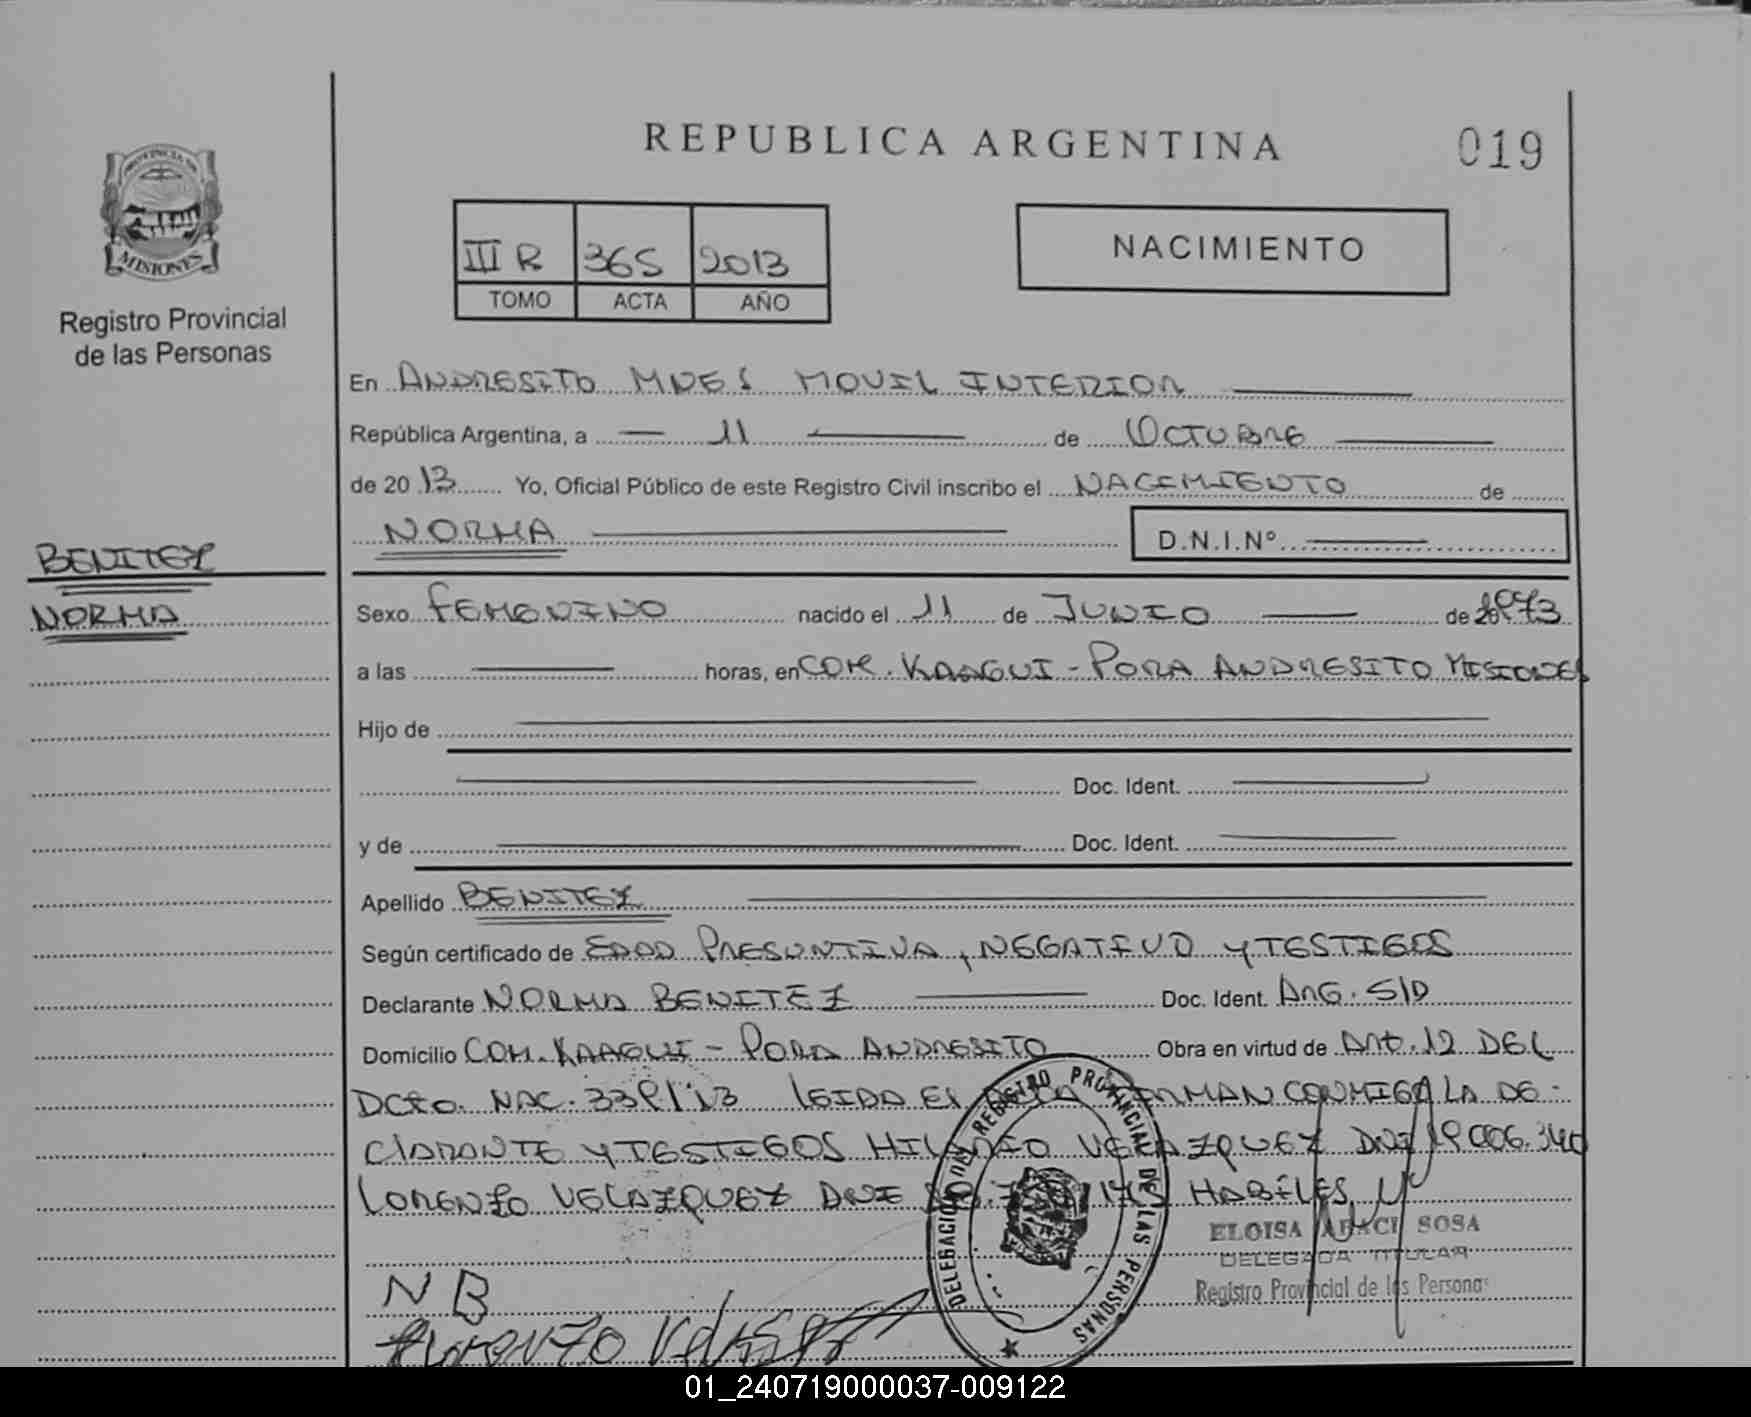 REPUBLICA ARGENTINA
019
PROVINCIA DE
MISIONES
Registro Provincial
de las Personas
III R 365 2013
TOMO ACTA AÑO
NACIMIENTO
En ANDRESITO MNES MOVIL INTERIOR
República Argentina, a 11 de OCTUBRE
de 20 13 Yo, Oficial Público de este Registro Civil inscribo el NACIMIENTO de
NORMA D.N.I.Nº
BENITEZ
NORMA
Sexo FEMENINO nacido el 11 de JUNIO de 1973
a las horas, en COM. KAAGUI - PORA ANDRESITO MISIONES
Hijo de
Doc. Ident.
y de Doc. Ident.
Apellido BENITEZ
Según certificado de EDAD PRESUNTIVA, NEGATIVO Y TESTIGOS
Declarante NORMA BENITEZ Doc. Ident. ARG. S/D
Domicilio COM. KAAGUI - PORA ANDRESITO Obra en virtud de Art. 12 DEL
DCTO. NAC. 339/13 LEIDA EL ACTA FIRMAN CONMIGO LA DE-
CLARANTE Y TESTIGOS HILARIO VELAZQUEZ DNI 19.006.340
LORENZO VELAZQUEZ DNI HABILES
DELEGACION DEL REGISTRO PROVINCIAL DE LAS PERSONAS
ELOISA ARACI SOSA
DELEGADA TITULAR
Registro Provincial de las Personas
N B
LORENZO
01_240719000037-009122